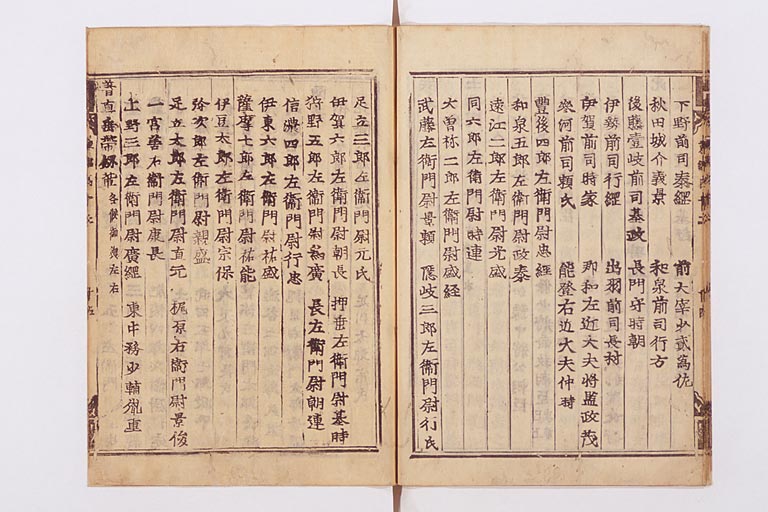 下野前司泰經　前太宰少貳為佐
秋田城介義景　和泉前司行方
後藤壹岐前司基政　長門守時朝
伊勢前司行經　出羽前司長村
伊賀前司時家　那和左近大夫将監政茂
参河前司頼氏　能登右近大夫仲時
豊後四郎左衛門尉忠經
和泉五郎左衛門尉政泰
遠江二郎左衛門尉光盛
同六郎左衛門尉時連
大曽祢二郎左衛門尉盛経
武藤左衛門尉景頼　隠岐三郎左衛門尉行氏
足立三郎左衛門尉元氏
伊賀六郎左衛門尉朝長　押垂左衛門尉基時
狩野五郎左衛門尉為廣　長左衛門尉朝連
信濃四郎左衛門尉行忠
伊東六郎左衛門尉祐盛
薩摩七郎左衛門尉祐能
伊豆太郎左衛門尉宗保
弥次郎左衛門尉親盛
足立太郎左衛門尉直元　梶原右衛門尉景俊
一宮善右衛門尉康長
上野三郎左衛門尉廣經　東中務少輔胤重
着直垂帯